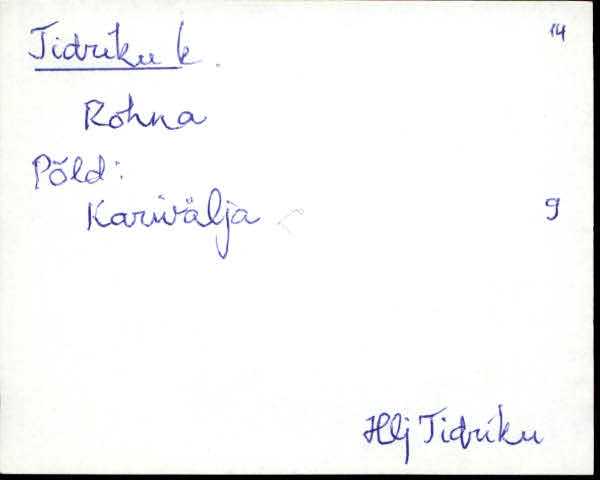 Tidriku k. 14
Rohna
Põld:
Karivälja 9
Hlj Tidriku